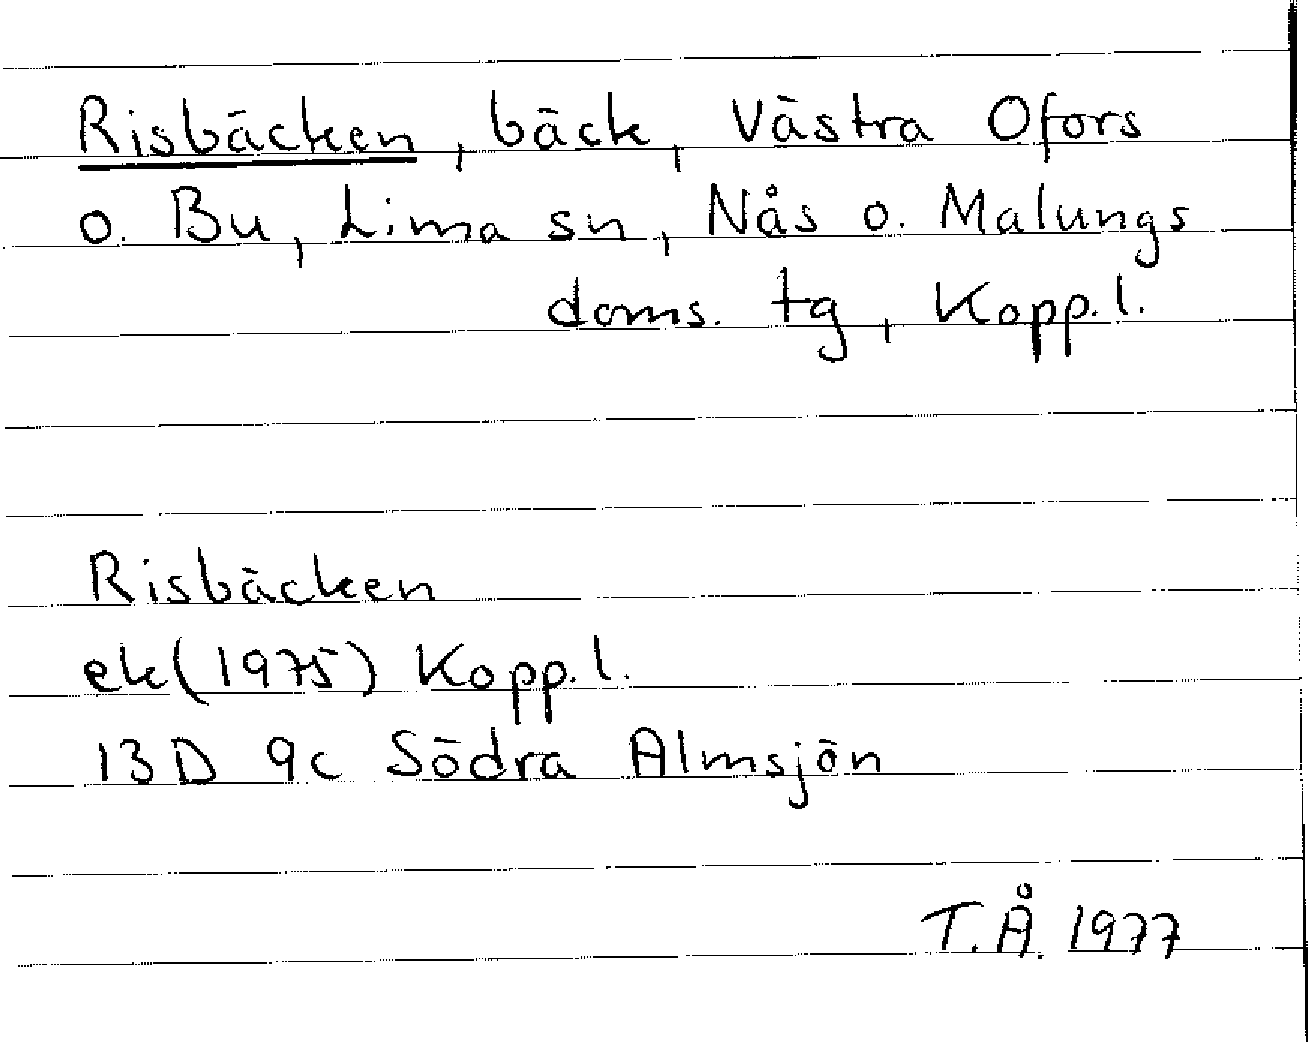 Risbäcken, bäck, Västra Ofors
o. Bu, Lima sn, Nås o. Malungs
doms. tg, Kopp.l.
Risbäcken
ek(1975) Kopp.l.
13D 9c Södra Almsjön
T.Å. 1977